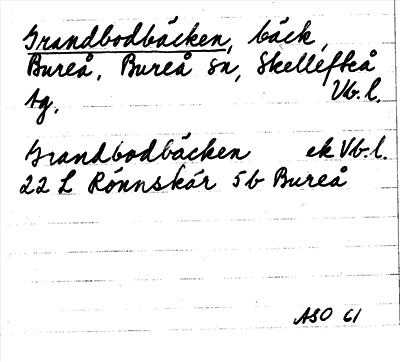 Grandbodbäcken, bäck,
Bureå, Bureå sn, Skellefteå
tg. Vb. l.
Grandbodbäcken ek Vb. l.
22 L Rönnskär 5b Bureå
ASO 61